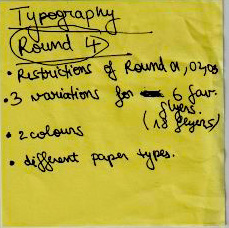 Typography
Round 4
• Restrictions of Round 01, 02, 03
• 3 variations for 6 fav.
flyers.
(18 flyers)
• 2 colours
• different paper types.